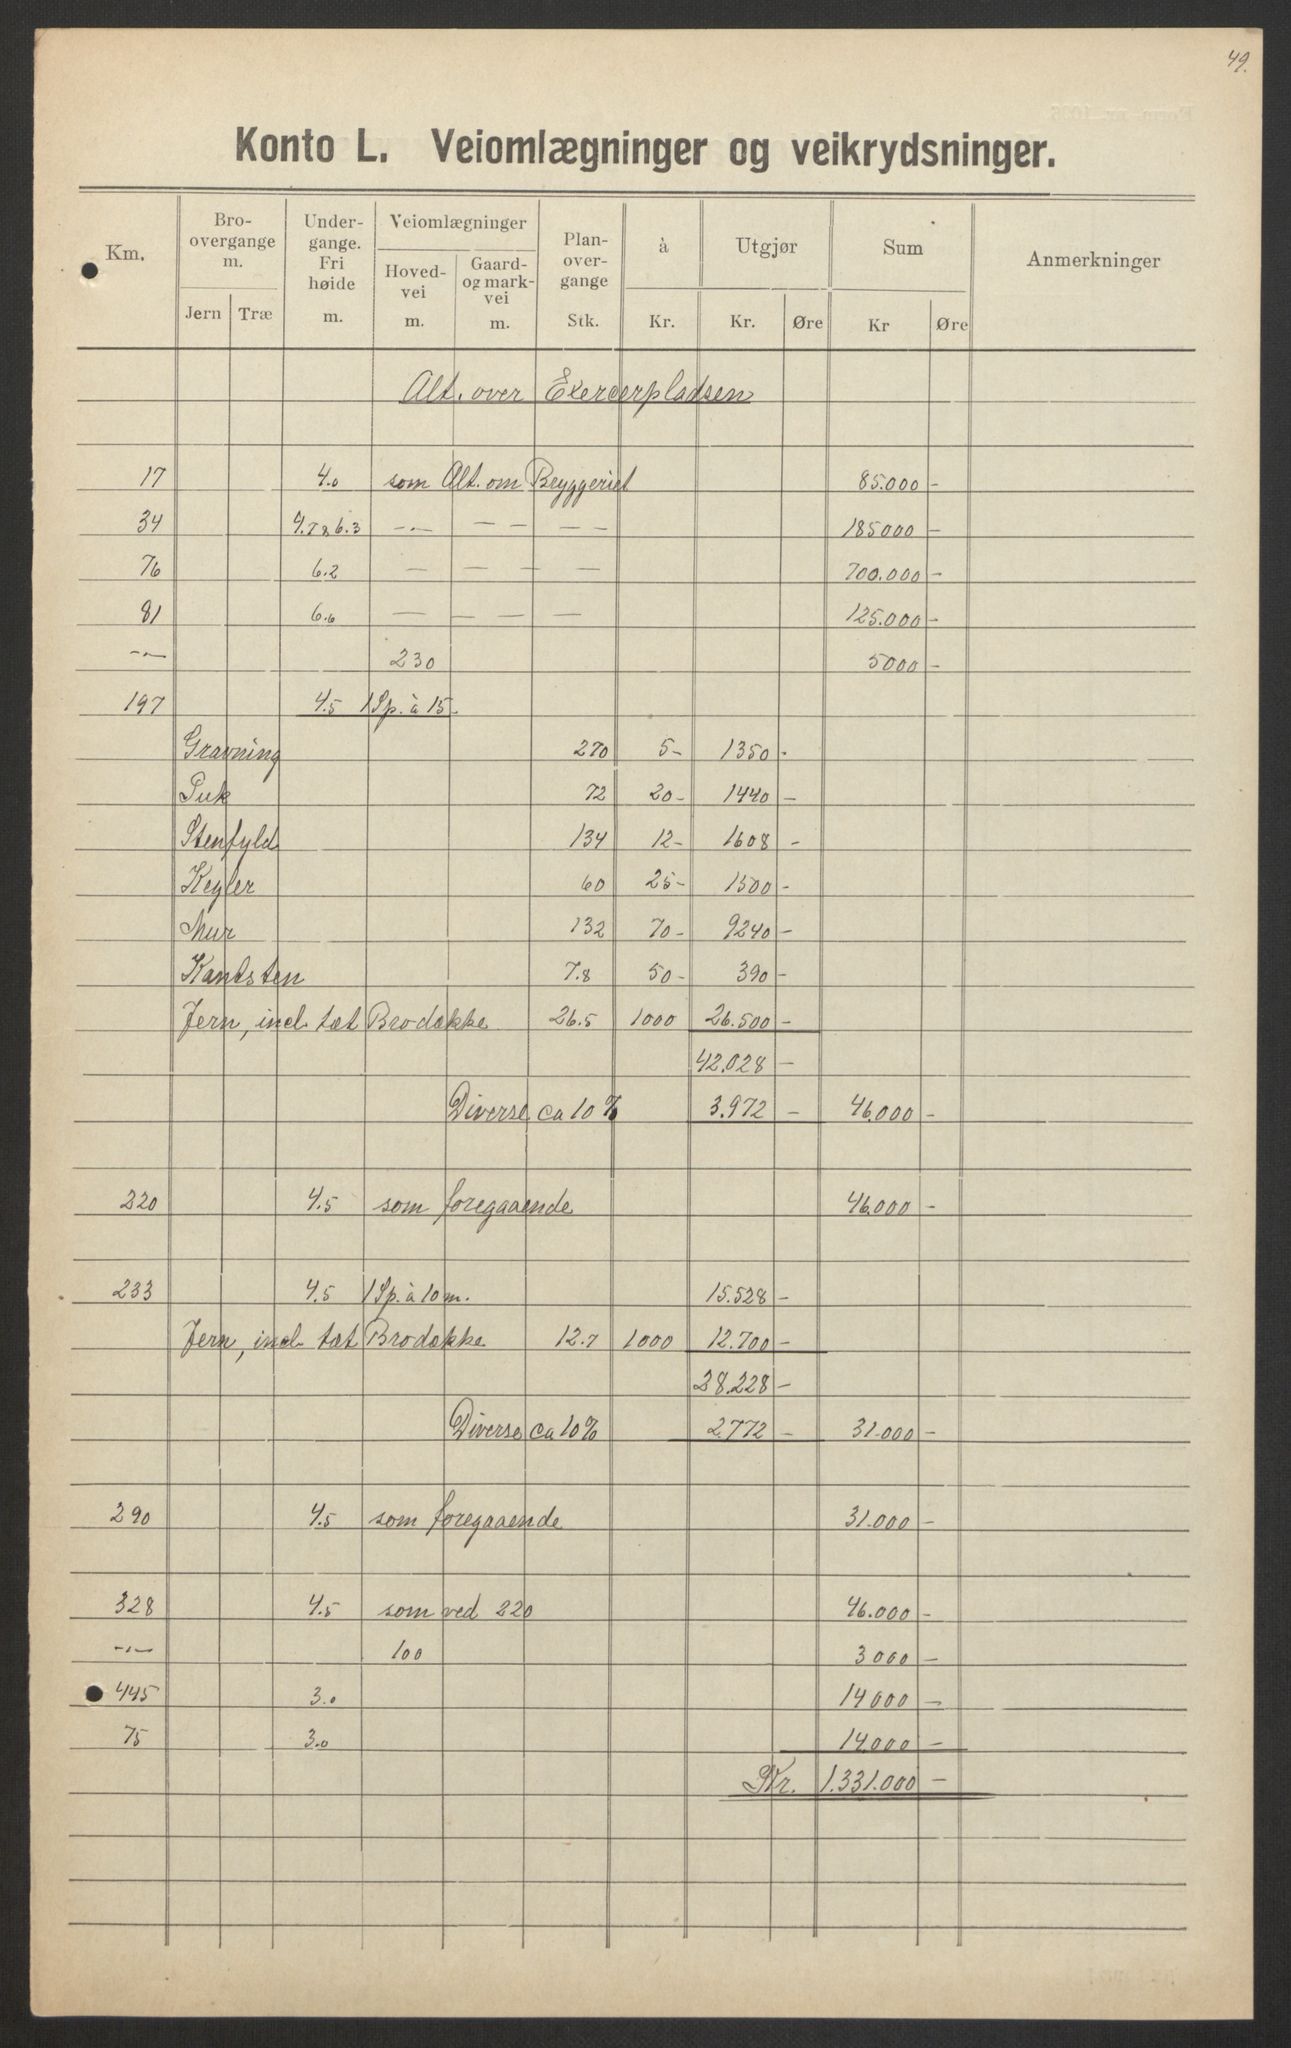 49.
Konto L. Veiomlægninger og veikrydsninger.
Km. Bro-overgange m. Under-gange. Fri høide Veiomlægninger Plan-over-gange à Utgjør Sum Anmerkninger
Hoved-vei Gaard- og mark-vei
Jern Træ m. m. m. Stk. Kr. Kr. Øre Kr Øre
Alt. over Exercerpladsen
17 4.0 som Alt. om Bryggeriet 85.000 -
34 4.7 & 6.3 -"- — — — — 185000 -
76 6.2 — — — — 700.000 -
81 6.6 — — — — 125.000 -
-"- 230 5000 -
197 4.5 1 Sp. à 15
Gravning 270 5- 1350 -
Puk 72 20- 1440 -
Stenfyld 134 12- 1608 -
Kegler 60 25- 1500 -
Mur 132 70- 9240 -
Kantsten 7.8 50- 390 -
Jern, incl. tæt Brodække 26.5 1000 26.500 -
42.028 -
Diverse ca 10% 3.972 - 46.000 -
220 4.5 som foregaaende 46.000 -
233 4.5 1 Sp. à 10 m. 15.528 -
Jern, incl. tæt Brodække 12.7 1000 12.700 -
28.228 -
Diverse ca 10% 2.772 - 31.000 -
290 4.5 som foregaaende 31.000 -
328 4.5 som ved 220 46.000 -
-"- 100 3000 -
445 3.0 14000 -
75 3.0 14.000 -
Kr. 1.331.000 -